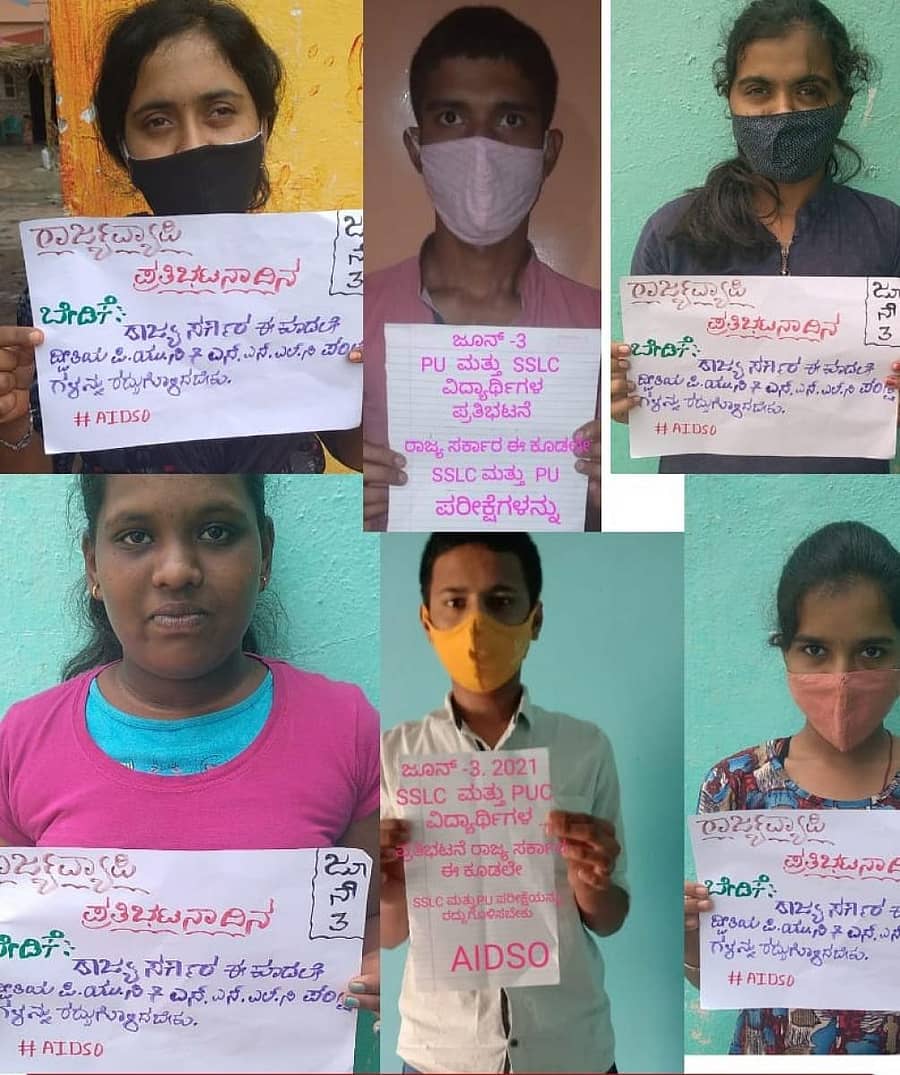 ರಾಜ್ಯವ್ಯಾಪಿ
ಪ್ರತಿಭಟನಾದಿನ
ಜೂ
ನ್
3
ಬೇಡಿಕೆ:
ರಾಜ್ಯ ಸರ್ಕಾರ ಈ ಕೂಡಲೇ
ದ್ವಿತೀಯ ಪಿ.ಯು.ಸಿ & ಎಸ್.ಎಸ್.ಎಲ್.ಸಿ ಪರೀಕ್ಷೆ
ಗಳನ್ನು ರದ್ದುಗೊಳಿಸಬೇಕು.
#AIDSO
ಜೂನ್ -3
PU ಮತ್ತು SSLC
ವಿದ್ಯಾರ್ಥಿಗಳ
ಪ್ರತಿಭಟನೆ
ರಾಜ್ಯ ಸರ್ಕಾರ ಈ ಕೂಡಲೇ
SSLC ಮತ್ತು PU
ಪರೀಕ್ಷೆಗಳನ್ನು
ರಾಜ್ಯವ್ಯಾಪಿ
ಪ್ರತಿಭಟನಾದಿನ
ಜೂ
ನ್
3
ಬೇಡಿಕೆ:
ರಾಜ್ಯ ಸರ್ಕಾರ ಈ ಕೂಡಲೇ
ದ್ವಿತೀಯ ಪಿ.ಯು.ಸಿ & ಎಸ್.ಎಸ್.ಎಲ್.ಸಿ ಪರೀಕ್ಷೆ
ಗಳನ್ನು ರದ್ದುಗೊಳಿಸಬೇಕು.
#AIDSO
ರಾಜ್ಯವ್ಯಾಪಿ
ಪ್ರತಿಭಟನಾದಿನ
ಜೂ
ನ್
3
ಬೇಡಿಕೆ:
ರಾಜ್ಯ ಸರ್ಕಾರ ಈ ಕೂಡಲೇ
ದ್ವಿತೀಯ ಪಿ.ಯು.ಸಿ & ಎಸ್.ಎಸ್.ಎಲ್.ಸಿ ಪರೀಕ್ಷೆ
ಗಳನ್ನು ರದ್ದುಗೊಳಿಸಬೇಕು.
#AIDSO
ಜೂನ್ -3. 2021
SSLC ಮತ್ತು PUC
ವಿದ್ಯಾರ್ಥಿಗಳ
ಪ್ರತಿಭಟನೆ ರಾಜ್ಯ ಸರ್ಕಾರ
ಈ ಕೂಡಲೇ
SSLC ಮತ್ತು PU ಪರೀಕ್ಷೆಯನ್ನು
ರದ್ದುಗೊಳಿಸಬೇಕು
AIDSO
ರಾಜ್ಯವ್ಯಾಪಿ
ಪ್ರತಿಭಟನಾದಿ
ಬೇಡಿಕೆ:
ರಾಜ್ಯ ಸರ್ಕಾರ ಈ
ದ್ವಿತೀಯ ಪಿ.ಯು.ಸಿ & ಎಸ್.ಎಸ್
ಗಳನ್ನು ರದ್ದುಗೊಳಿಸಬೇಕು.
#AIDSO